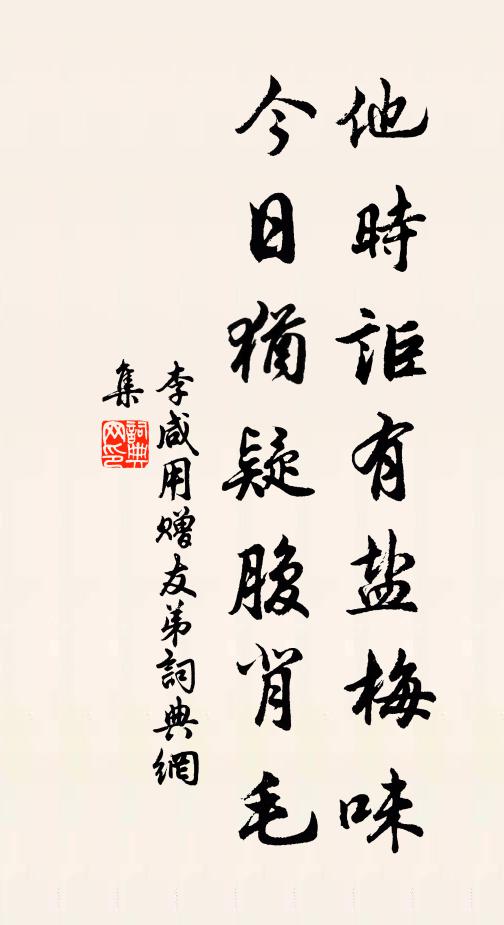 他時詎有盐梅味
今日猶疑腹背毛
李咸用赠友弟詞典網
集
詞典网印